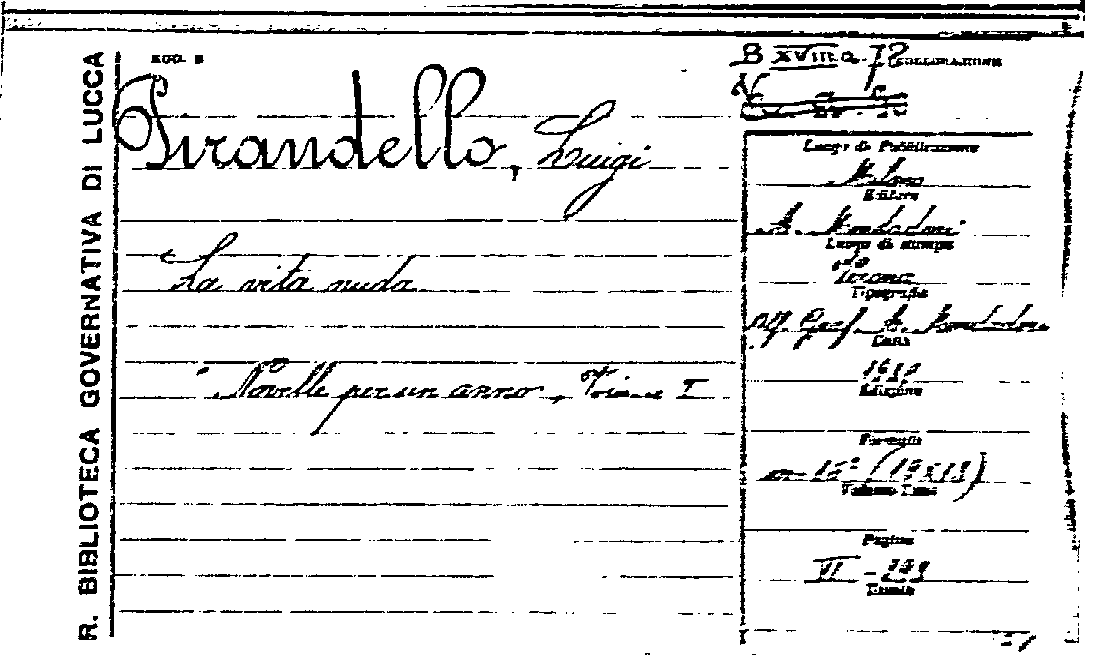 R. BIBLIOTECA GOVERNATIVA DI LUCCA
MOD. B
B XVIII a.
COLLOCAZIONE
Pirandello, Luigi
La vita nuda
Novelle per un anno, I
Luogo di Pubblicazione
Milano
Editore
A. Mondadori
Luogo di stampa
Verona
Tipografia
Off. Graf. A. Mondadori
Data
Edizione
Formato
in 16° (19x13)
Volume Tomi
Pagine
VI -
Tavole